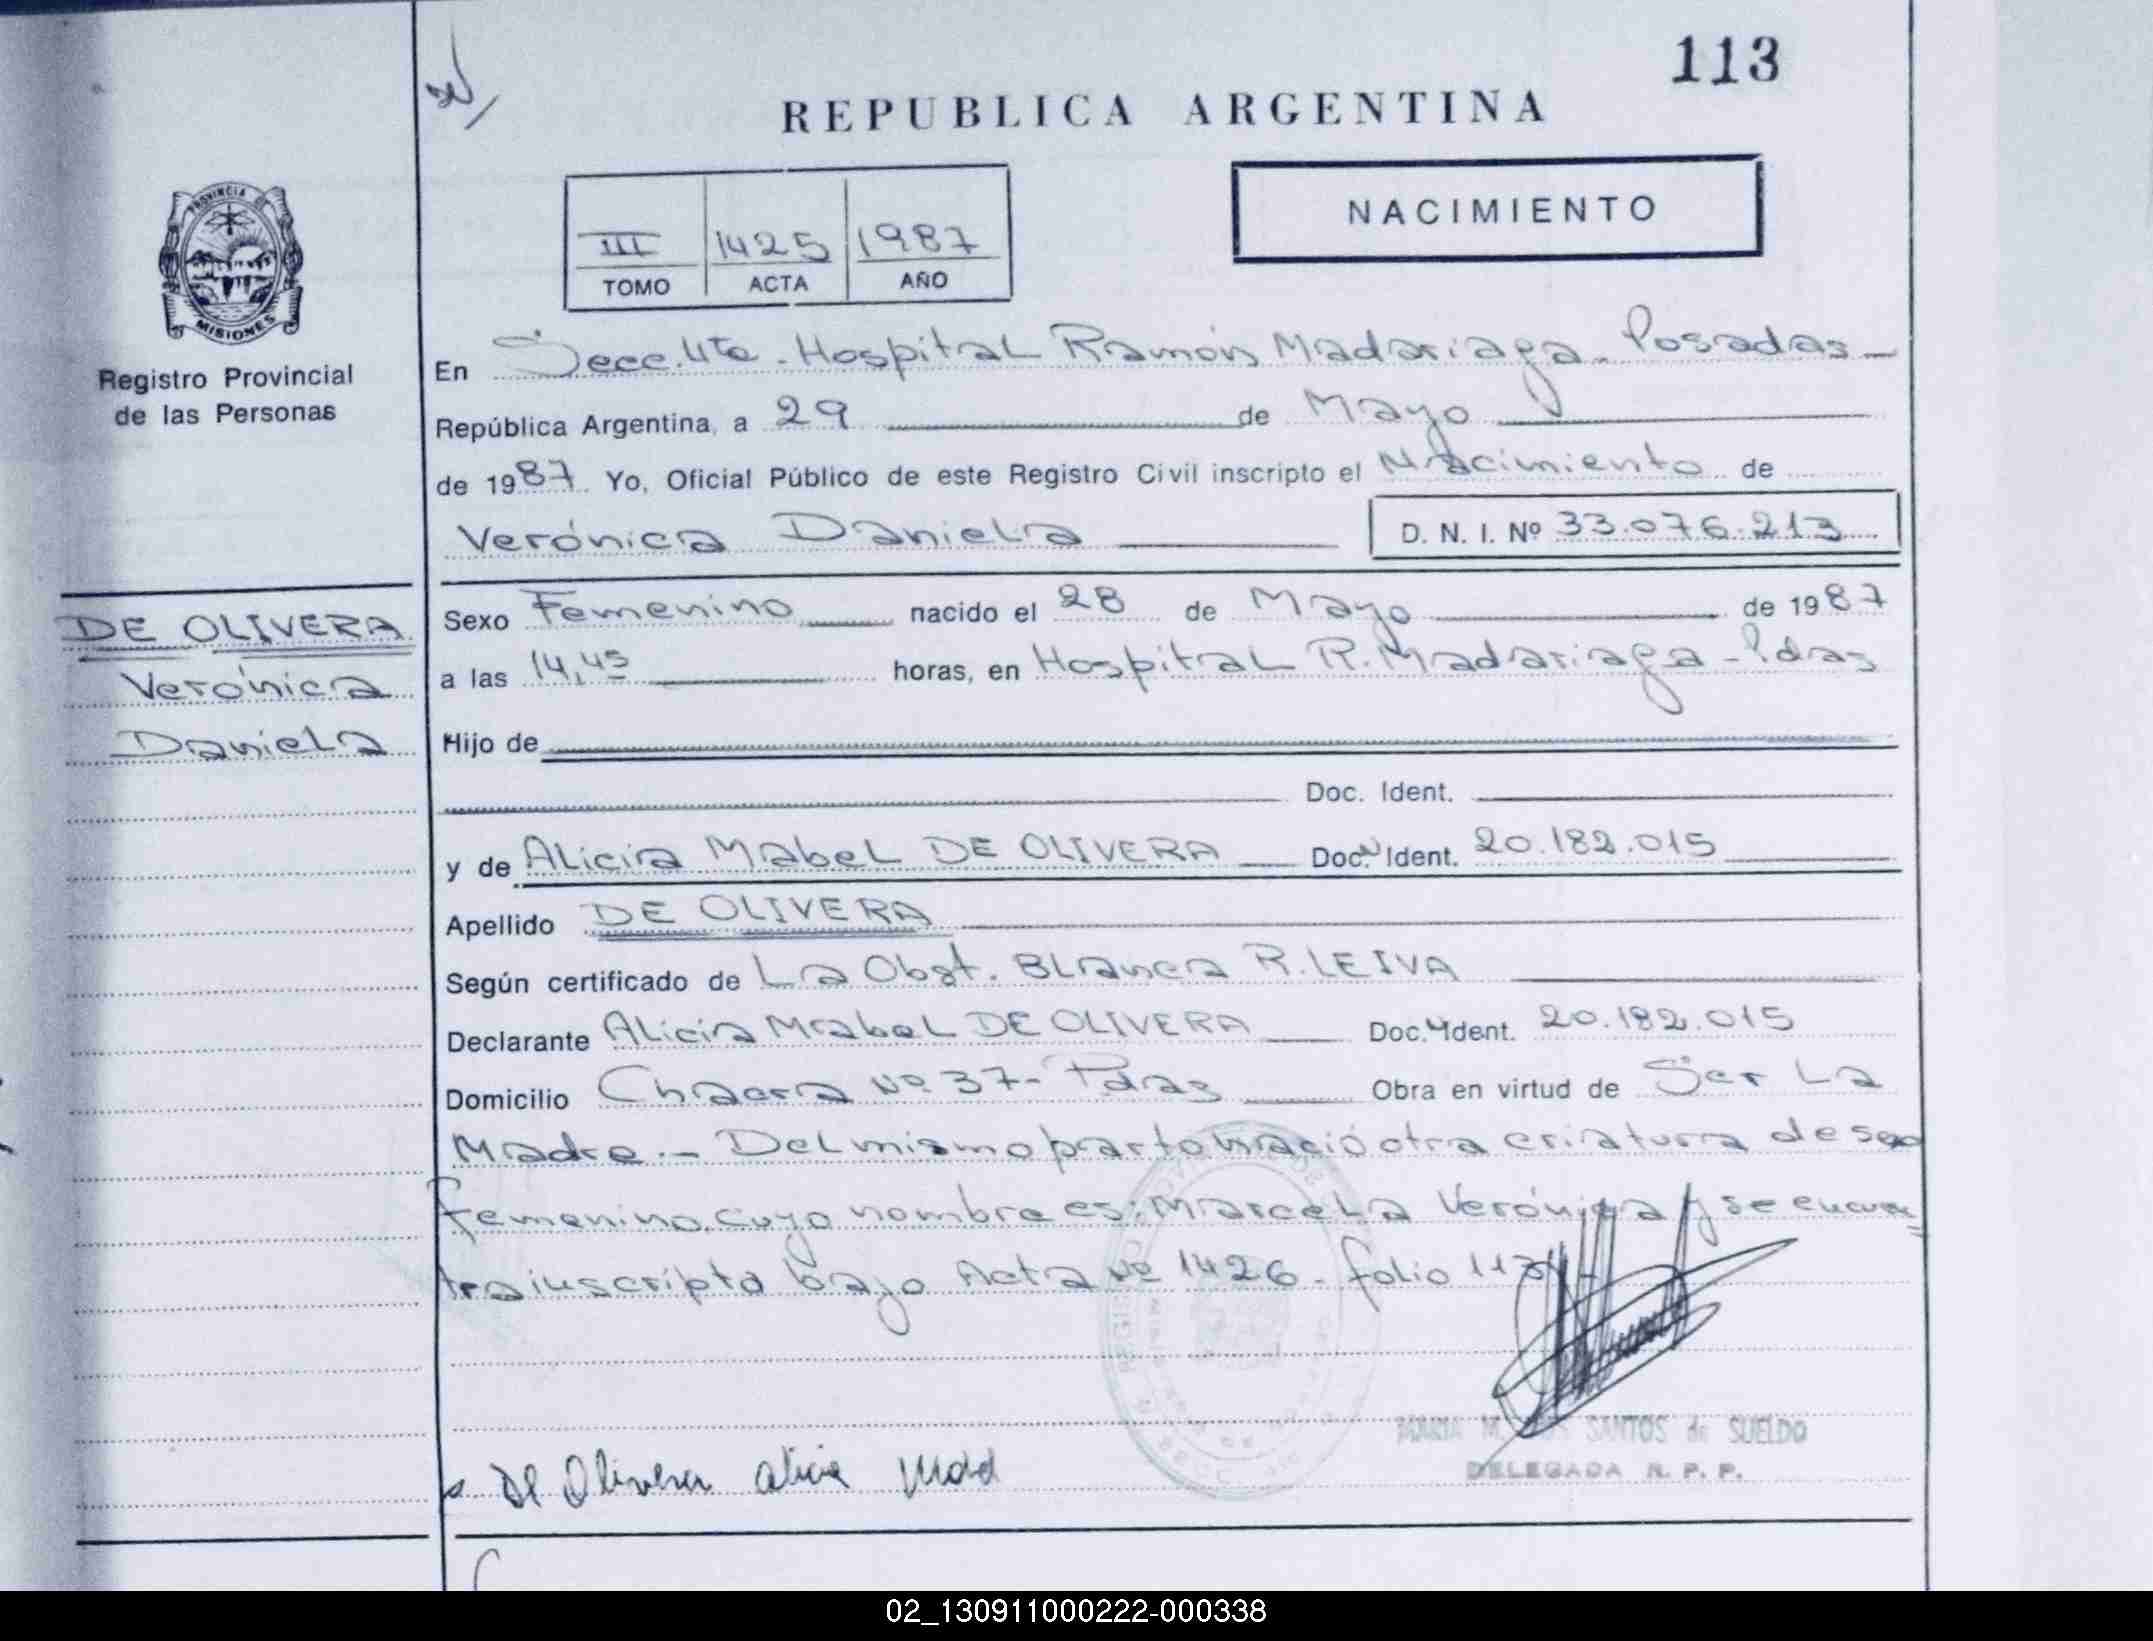 113
REPUBLICA ARGENTINA
NACIMIENTO
III 1425 1987
TOMO ACTA AÑO
PROVINCIA DE MISIONES
Registro Provincial
de las Personas
En Secc. 4ta. Hospital Ramón Madariaga - Posadas -
República Argentina, a 29 de Mayo
de 1987. Yo, Oficial Público de este Registro Civil inscripto el Nacimiento de
Verónica Daniela D. N. I. Nº 33.076.213
DE OLIVERA
Verónica
Daniela
Sexo Femenino nacido el 28 de Mayo de 1987
a las 14,45 horas, en Hospital R. Madariaga - Pdas
Hijo de
Doc. Ident.
y de Alicia Mabel DE OLIVERA Doc. Ident. 20.182.015
Apellido DE OLIVERA
Según certificado de La Obst. Blanca R. LEIVA
Declarante Alicia Mabel DE OLIVERA Doc. Ident. 20.182.015
Domicilio Chacra Nº 37 - Pdas Obra en virtud de Ser La
Madre. - Del mismo parto nació otra criatura de sexo
femenino, cuyo nombre es: Marcela Verónica y se encuen=
tra inscripta bajo Acta Nº 1426 - folio
MARIA M. SANTOS de SUELDO
DELEGADA R. P. P.
De Olivera Alicia
02_130911000222-000338